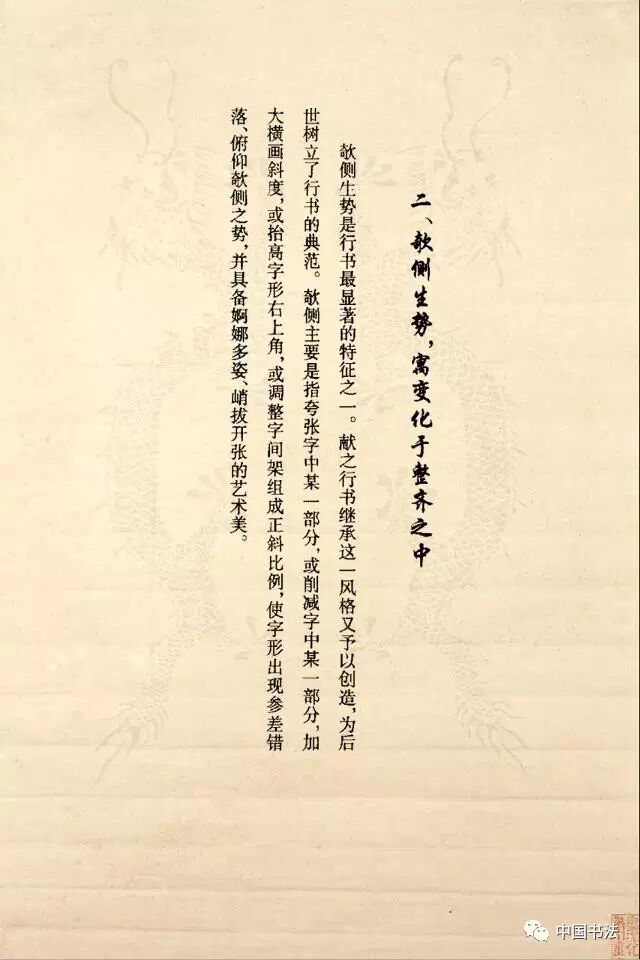 二、欹侧生势，寓变化于整齐之中
欹侧生势是行书最显著的特征之一。献之行书继承这一风格又予以创造，为后
世树立了行书的典范。欹侧主要是指夸张字中某一部分，或削减字中某一部分，加
大横画斜度，或抬高字形右上角，或调整字间架组成正斜比例，使字形出现参差错
落、俯仰欹侧之势，并具备婀娜多姿、峭拔开张的艺术美。
中国书法